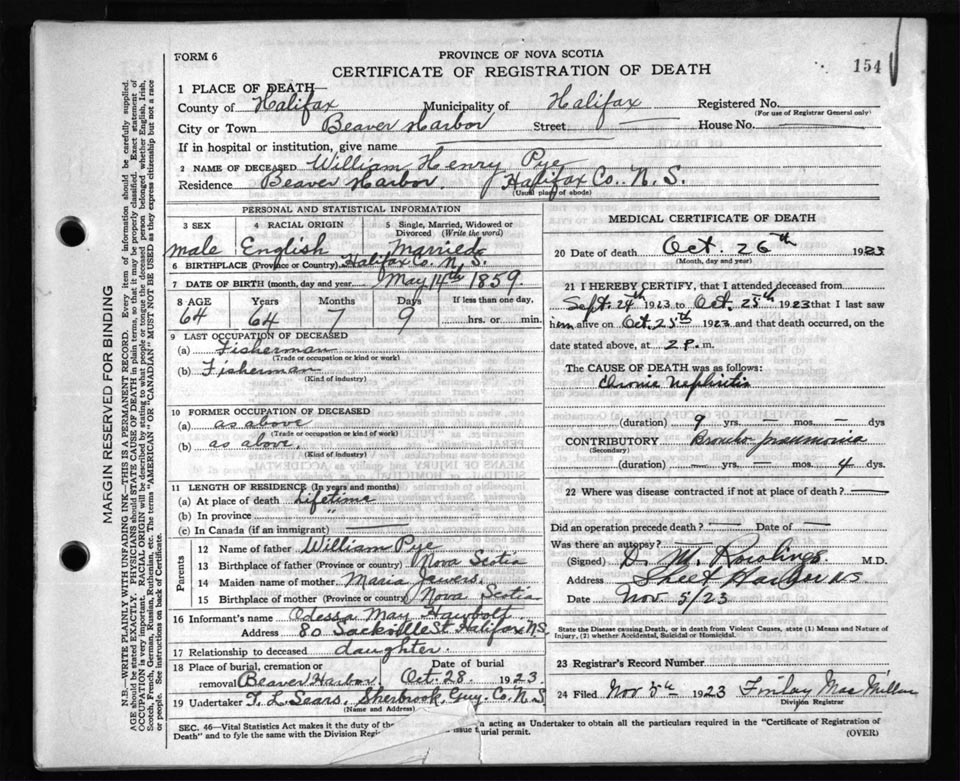 FORM 6
PROVINCE OF NOVA SCOTIA
CERTIFICATE OF REGISTRATION OF DEATH
154
1 PLACE OF DEATH—
County of Halifax Municipality of Halifax Registered No.
(For use of Registrar General only)
City or Town Beaver Harbor Street — House No. —
If in hospital or institution, give name
2 NAME OF DECEASED William Henry Pye
Residence Beaver Harbor. Halifax Co.. N. S.
(Usual place of abode)
PERSONAL AND STATISTICAL INFORMATION
3 SEX 4 RACIAL ORIGIN 5 Single, Married, Widowed or Divorced (Write the word)
male English Married
6 BIRTHPLACE (Province or Country) Halifax Co. N. S.
7 DATE OF BIRTH (month, day and year) May 14th 1859.
8 AGE Years Months Days If less than one day,
64 64 7 9 hrs. or min.
9 LAST OCCUPATION OF DECEASED
(a) Fisherman
(Trade or occupation or kind or work)
(b) Fisherman
(Kind of industry)
10 FORMER OCCUPATION OF DECEASED
(a) as above
(Trade or occupation or kind of work)
(b) as above.
(Kind of industry)
11 LENGTH OF RESIDENCE (In years and months)
(a) At place of death Lifetime
(b) In province "
(c) In Canada (if an immigrant) —
Parents
12 Name of father William Pye
13 Birthplace of father (Province or country) Nova Scotia
14 Maiden name of mother Maria Jewers.
15 Birthplace of mother (Province or country) Nova Scotia
16 Informant's name Odessa May Hawbolt
Address 80 Sackville St Halifax NS
17 Relationship to deceased daughter.
18 Place of burial, cremation or removal Beaver Harbor. Date of burial Oct. 28. 1923.
19 Undertaker T. L. Sears, Sherbrook, Guy. Co. N. S
(Name and Address)
MEDICAL CERTIFICATE OF DEATH
20 Date of death Oct. 26th 1923
(Month, day and year)
21 I HEREBY CERTIFY, that I attended deceased from
Sept. 24th 1923 to Oct. 25th 1923 that I last saw
him alive on Oct. 25th 1923 and that death occurred, on the
date stated above, at 2 P. m.
The CAUSE OF DEATH was as follows:
Chronic Nephritis
(duration) 9 yrs. — mos. — dys
CONTRIBUTORY Broncho pneumonia
(Secondary)
(duration) — yrs. — mos. 4 dys.
22 Where was disease contracted if not at place of death? —
Did an operation precede death? — Date of —
Was there an autopsy? —
(Signed) D. M. Rowlings M.D.
Address Sheet Harbor NS
Date Nov 5/23
State the Disease causing Death, or in death from Violent Causes, state (1) Means and Nature of Injury, (2) whether Accidental, Suicidal or Homicidal.
23 Registrar's Record Number
24 Filed Nov 5th 1923 Finlay MacMillan
Division Registrar
SEC. 46—Vital Statistics Act makes it the duty of the acting as Undertaker to obtain all the particulars required in the "Certificate of Registration of
Death" and to fyle the same with the Division burial permit. (OVER)
MARGIN RESERVED FOR BINDING
N.B.—WRITE PLAINLY WITH UNFADING INK—THIS IS A PERMANENT RECORD. Every item of information should be carefully supplied.
AGE should be stated EXACTLY. PHYSICIANS should STATE CAUSE OF DEATH in plain terms, so that it may be properly classified. Exact statement of
OCCUPATION is very important. RACIAL ORIGIN will be described by stating to what people or tongue the deceased person belonged whether English, Irish,
Scotch, French, German, Russian, Ruthenian, etc. The terms "AMERICAN" or "CANADIAN" MUST NOT BE USED as they express citizenship but not a race
or people. See instructions on back of Certificate.